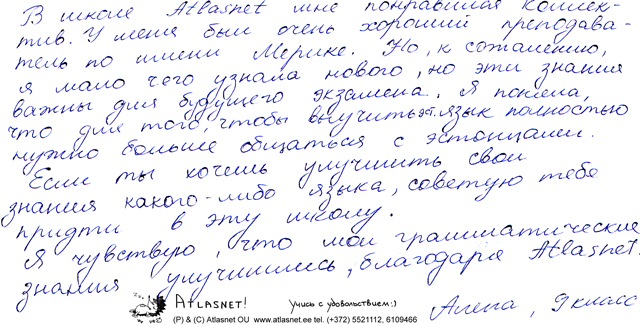 В школе Atlasnet мне понравился коллек-
тив. У меня был очень хороший преподава-
тель по имени Мерике. Но, к сожалению,
я мало чего узнала нового, но эти знания
важны для будущего экзамена. Я поняла,
что для того, чтобы выучить эст. язык полностью
нужно больше общаться с эстонцами.
Если ты хочешь улучшить свои
знания какого-либо языка, советую тебе
придти в эту школу.
Я чувствую, что мои грамматические
знания улучшились, благодаря Atlasnet.
Алена, 9 класс
ATLASNET! Учись с удовольствием:)
(P) & (C) Atlasnet OU www.atlasnet.ee tel. (+372) 5521112, 6109466